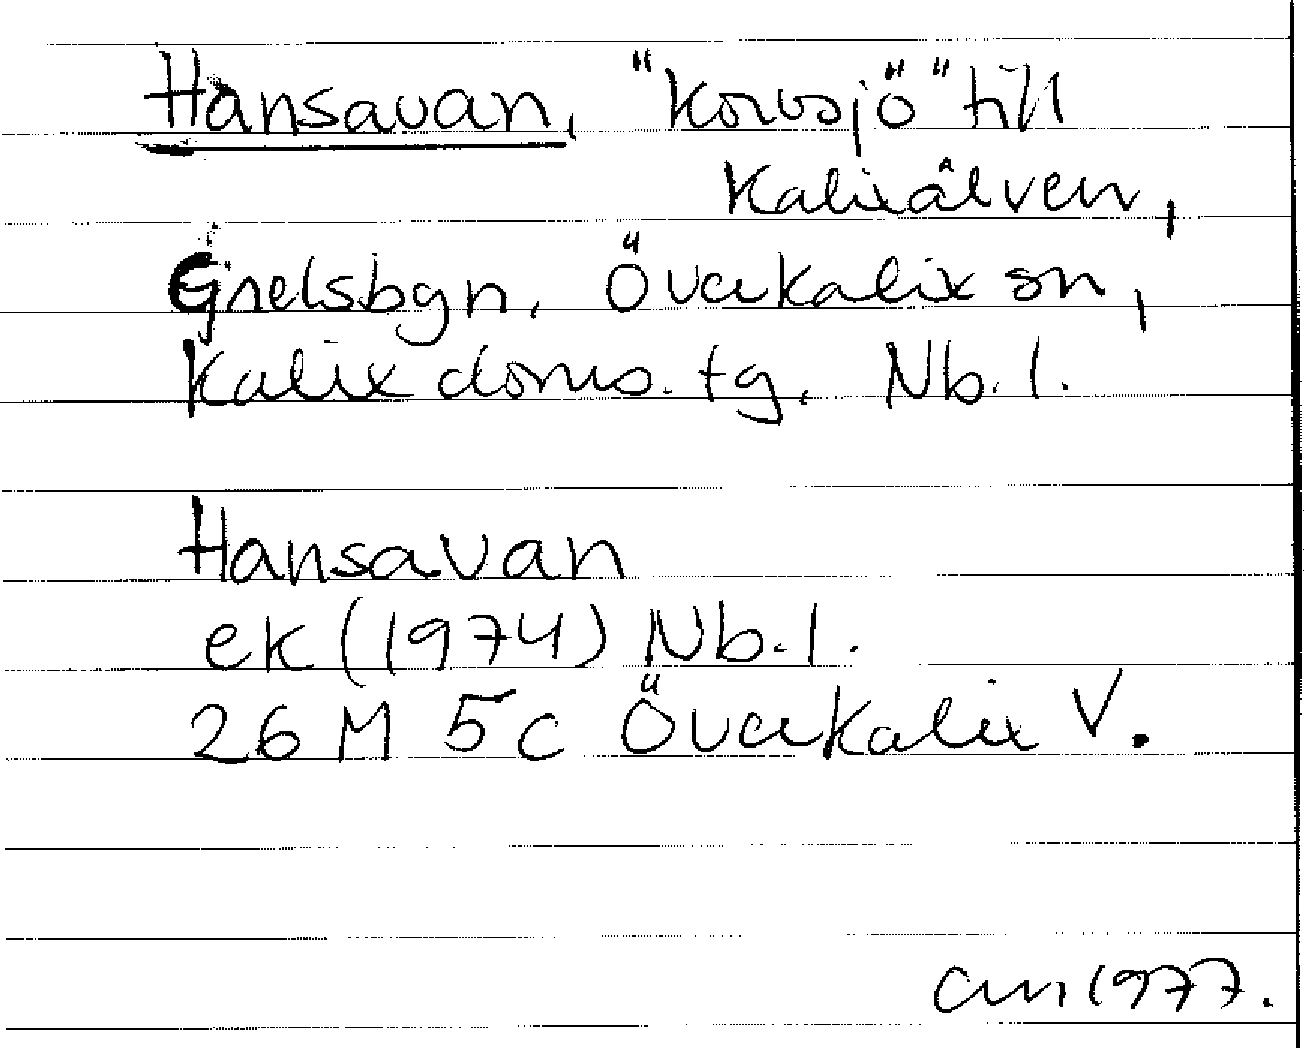 Hansavan, "korvsjö" till
Kalixälven,
Gnelsbgn, Överkalix sn,
Kalix doms. tg. Nb. l.
Hansavan
ek (1974) Nb. l.
26 M 5c Överkalix V.
1977.